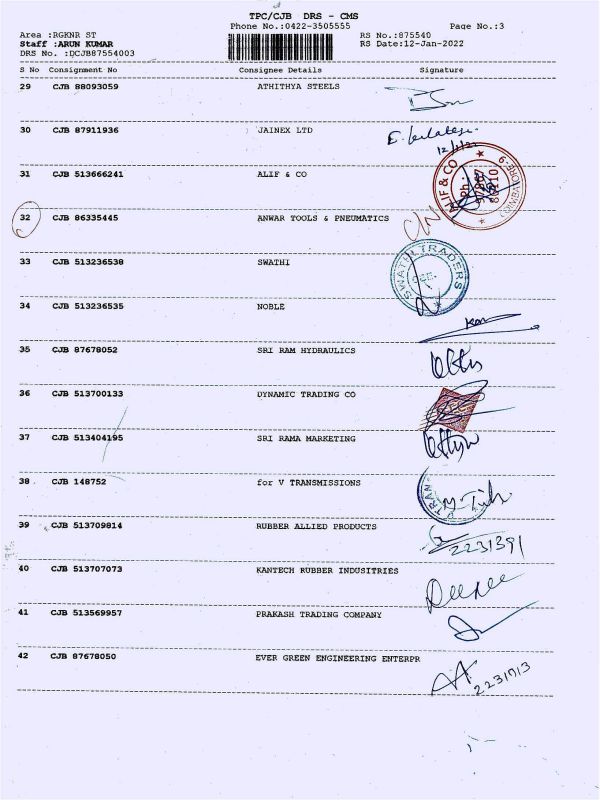 TPC/CJB DRS - CMS
Phone No.:0422-3505555
Page No.:3
Area :RGKNR ST
RS No.:875540
Staff :ARUN KUMAR
RS Date:12-Jan-2022
DRS No. :DCJB87554003
S No Consignment No Consignee Details Signature
29 CJB 88093059 ATHITHYA STEELS
30 CJB 87911936 JAINEX LTD
31 CJB 513666241 ALIF & CO
ALIF & CO
COIMBATORE-9
Ph:
32 CJB 86335445 ANWAR TOOLS & PNEUMATICS
33 CJB 513236538 SWATHI
SWATHI TRADERS
34 CJB 513236535 NOBLE
35 CJB 87678052 SRI RAM HYDRAULICS
36 CJB 513700133 DYNAMIC TRADING CO
37 CJB 513404195 SRI RAMA MARKETING
38 CJB 148752 for V TRANSMISSIONS
39 CJB 513709814 RUBBER ALLIED PRODUCTS
2231391
40 CJB 513707073 KANTECH RUBBER INDUSITRIES
41 CJB 513569957 PRAKASH TRADING COMPANY
42 CJB 87678050 EVER GREEN ENGINEERING ENTERPR
2231713